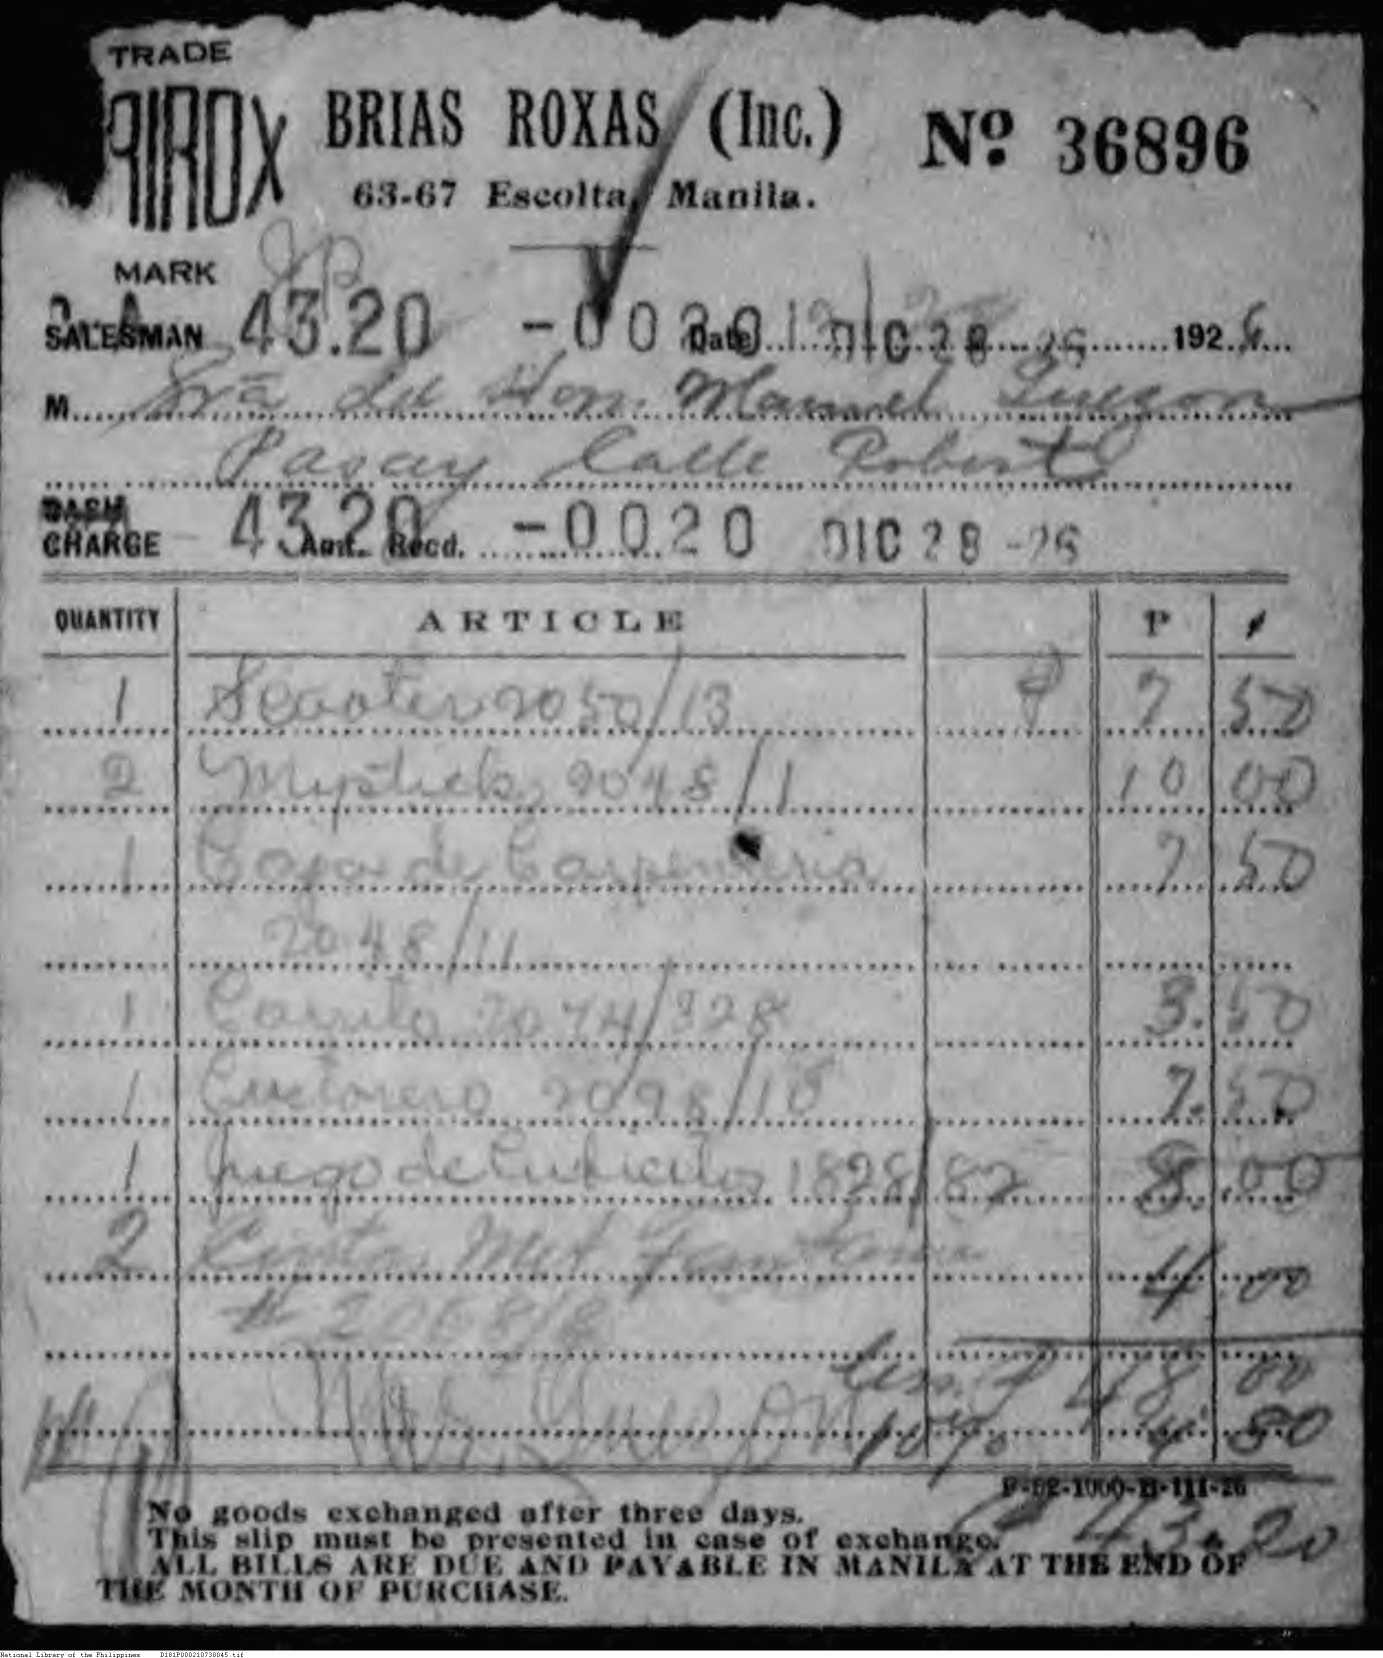 TRADE
AIROX BRIAS ROXAS (Inc.) Nº 36896
63-67 Escolta, Manila.
MARK
SALESMAN 43.20 -0020 Date DIC 28 -26 192.6
M. Sra de Hon. Manuel Quezon
Pasay Calle Roberts
CASH
CHARGE 43.20 Amt. Recd. -0020 DIC 28 -26
QUANTITY ARTICLE P ¢
1 Scooter 2050/13 P 7 50
2 Mystick 2048/1 10 00
1 Caja de Carpenteria 7 50
2048/11
1 Carrito 2074/328 3.50
1 2098/18 7.50
1 Juego de Cubiertos 1828/82 8.00
2 Met 4.00
# 2068/8
Less P 48 00
10% 4.80
F-52-1000-B-111-26
P 43.20
No goods exchanged after three days.
This slip must be presented in case of exchange.
ALL BILLS ARE DUE AND PAYABLE IN MANILA AT THE END OF
THE MONTH OF PURCHASE.
National Library of the Philippines D181P000210738045.tif